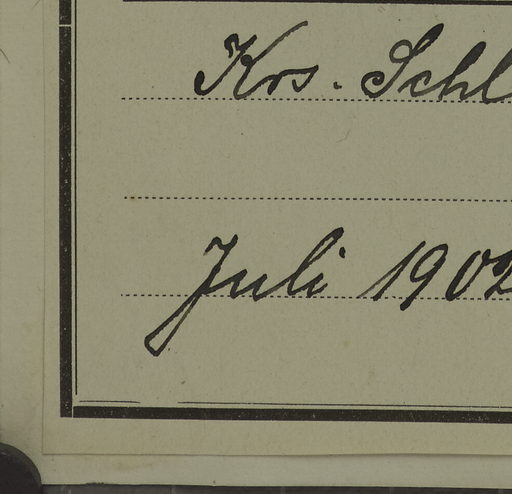 Krs. Schl
Juli 1902